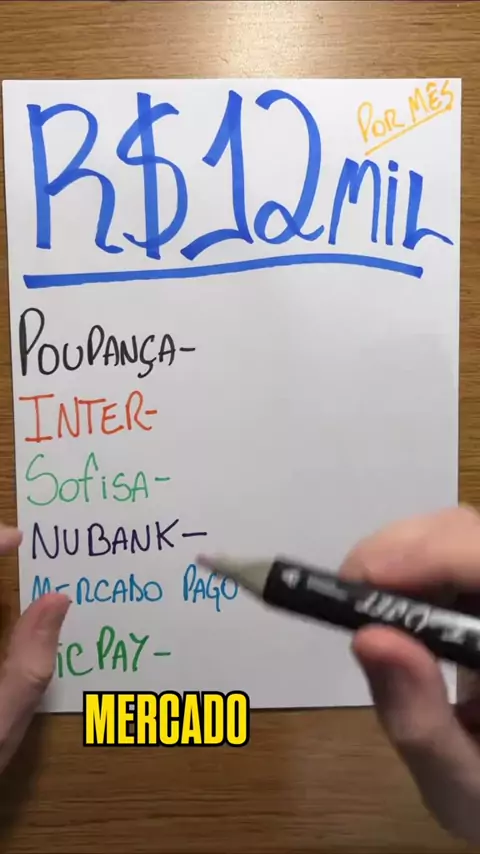 R$12 MIL
POR MÊS
POUPANÇA-
INTER-
Sofisa-
NUBANK-
MERCADO PAGO
ICPAY-
MERCADO